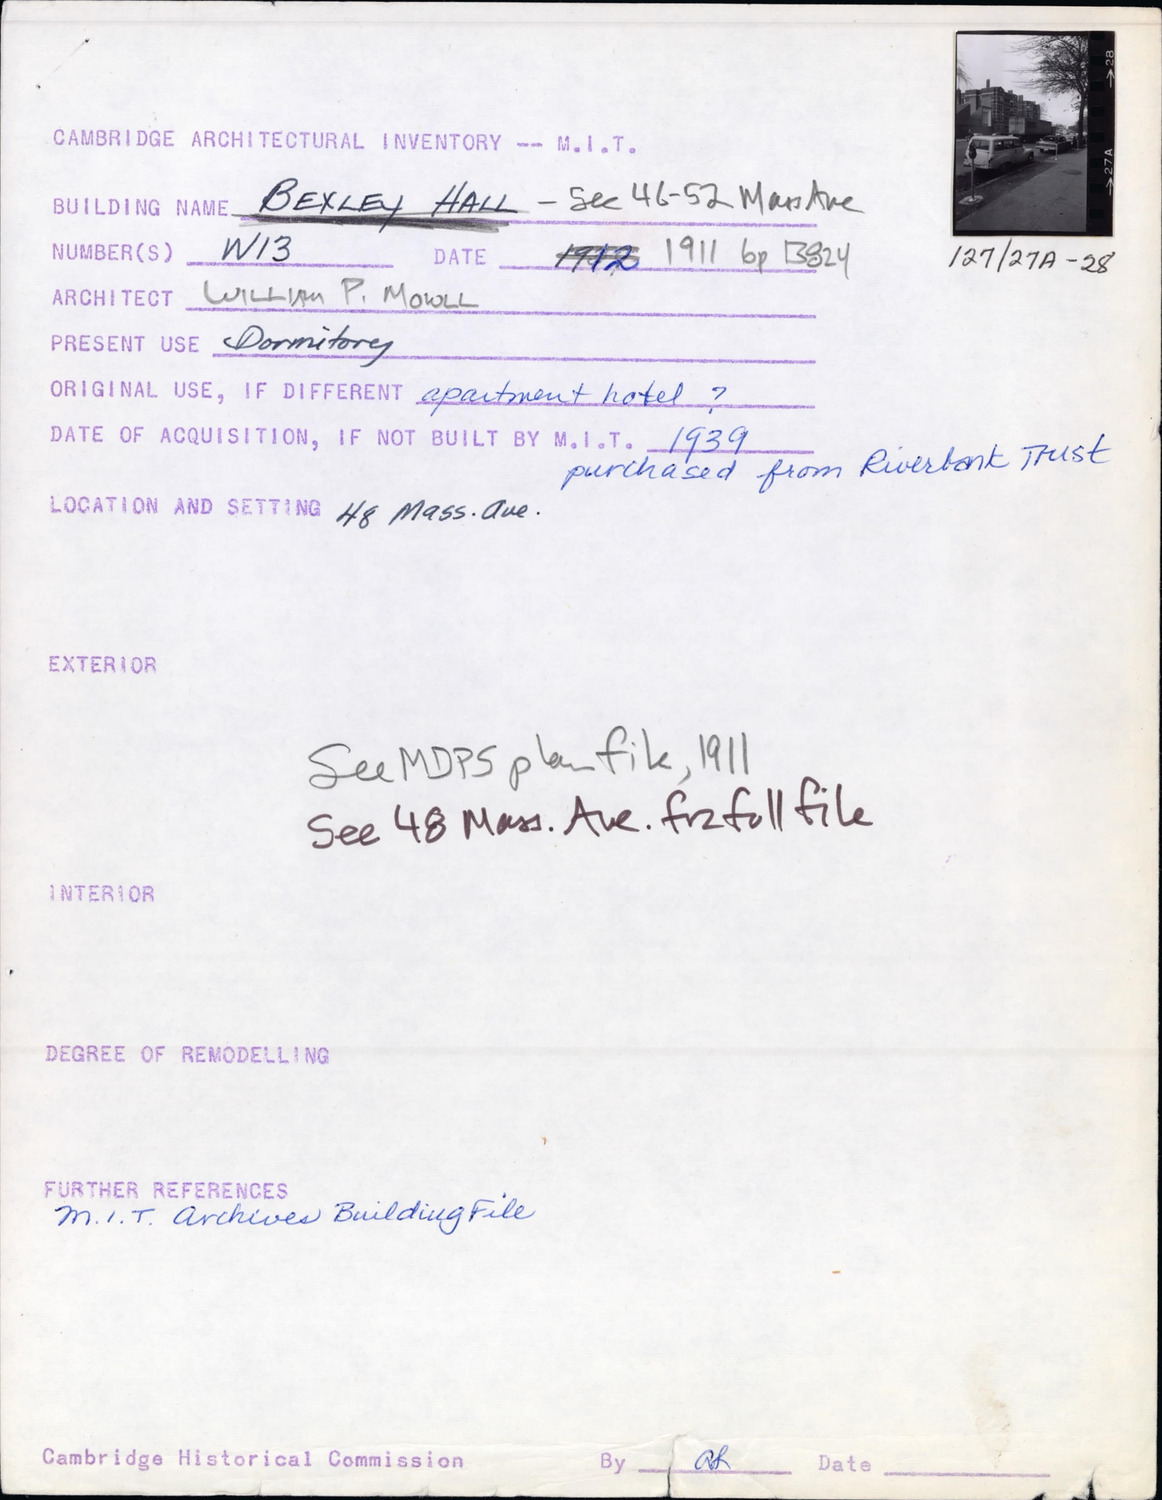 →28
→27A
127/27A-28
CAMBRIDGE ARCHITECTURAL INVENTORY -- M.I.T.
BUILDING NAME BEXLEY HALL - See 46-52 Mass Ave
NUMBER(S) W13 DATE 1912 1911 bp
ARCHITECT WILLIAM P. MOWLL
PRESENT USE Dormitory
ORIGINAL USE, IF DIFFERENT apartment hotel ?
DATE OF ACQUISITION, IF NOT BUILT BY M.I.T. 1939
purchased from Riverbank Trust
LOCATION AND SETTING 48 Mass. Ave.
EXTERIOR
See MDPS plan file, 1911
See 48 Mass. Ave. for full file
INTERIOR
DEGREE OF REMODELLING
FURTHER REFERENCES
M.I.T. Archives Building File
Cambridge Historical Commission By Date